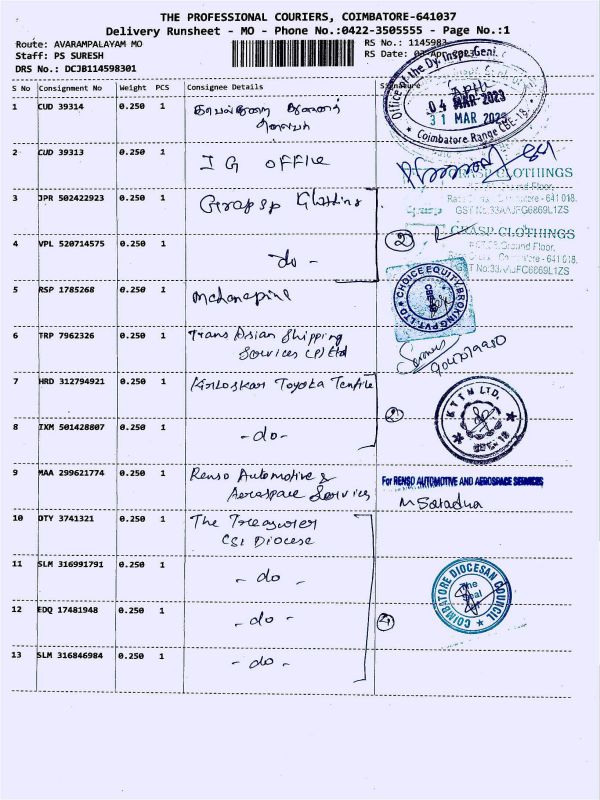 THE PROFESSIONAL COURIERS, COIMBATORE-641037
Delivery Runsheet - MO - Phone No.:0422-3505555 - Page No.:1
Route: AVARAMPALAYAM MO
RS No.: 1145983
Staff: PS SURESH
RS Date: 03-Apr-2023
DRS No.: DCJB114598301
S No Consignment No Weight PCS Consignee Details Signature
1 CUD 39314 0.250 1
Office of the Dy. Inspr. Genl.
04 MAR 2023
31 MAR 2023
Coimbatore Range CBE-18.
2 CUD 39313 0.250 1 IG OFFICE
3 JPR 502422923 0.250 1 Grapsp Clothing
GRASP CLOTHINGS
Ground Floor,
Coimbatore - 641 018.
4 VPL 520714575 0.250 1 - do -
2
GRASP CLOTHINGS
Ground Floor,
Coimbatore - 641 018.
5 RSP 1785268 0.250 1
CHOICE EQUITY BROKING PVT. LTD
6 TRP 7962326 0.250 1 Trans Asian Shipping
Services (P) Ltd
7 HRD 312794921 0.250 1 Kirloskar Toyota Textile
KTTM LTD.
CBE-18
8 IXM 501428807 0.250 1 - do -
2
9 MAA 299621774 0.250 1 Renso Automotive &
Aerospace Services
For RENSO AUTOMOTIVE AND AEROSPACE SERVICES
10 DTY 3741321 0.250 1 The Treasurer
CSI Diocese
11 SLM 316991791 0.250 1 - do -
COIMBATORE DIOCESAN COUNCIL
The Seal
12 EDQ 17481948 0.250 1 - do -
4
13 SLM 316846984 0.250 1 - do -